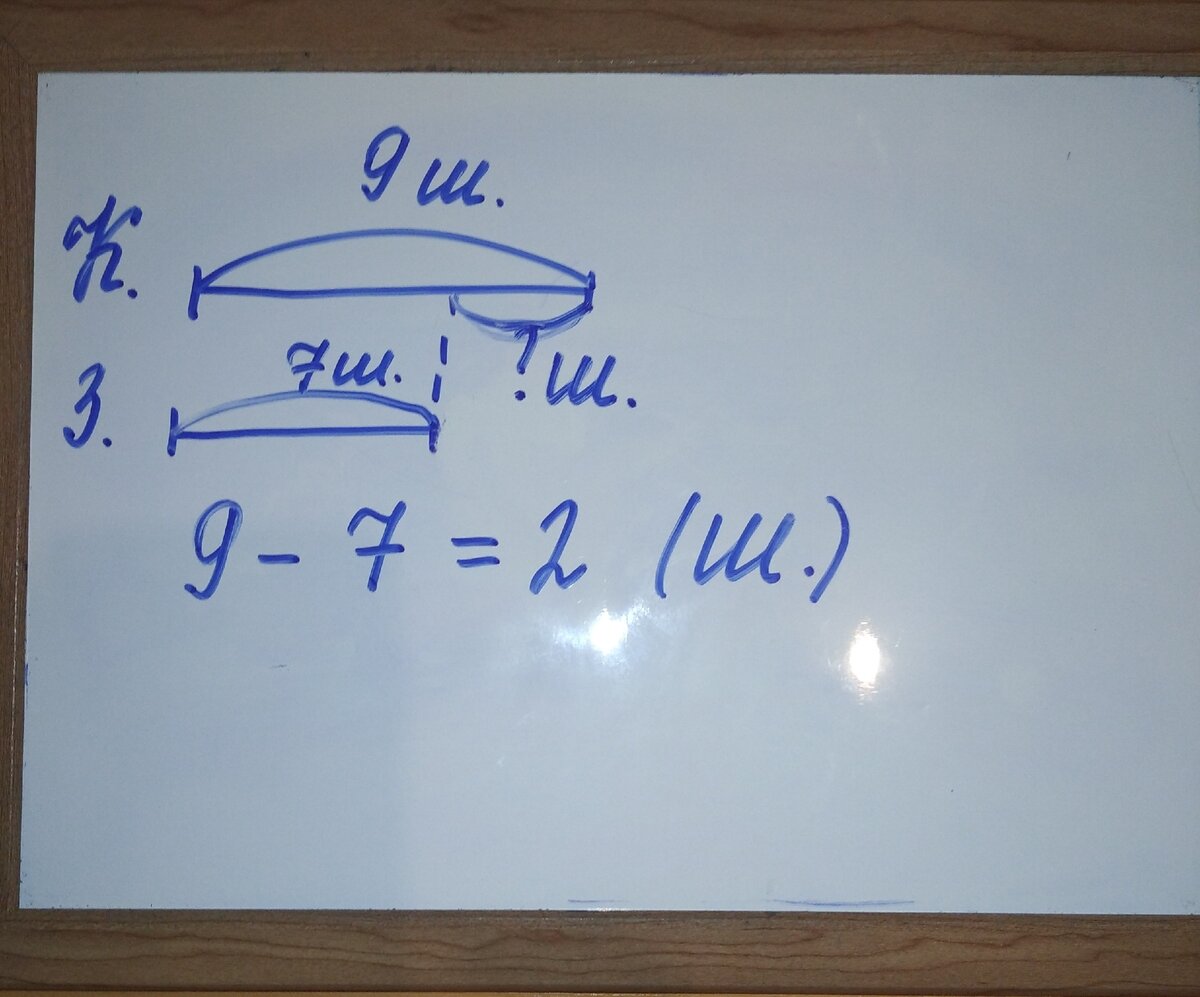 9 ш.
К.
7 ш.
? ш.
З.
9 - 7 = 2 (ш.)